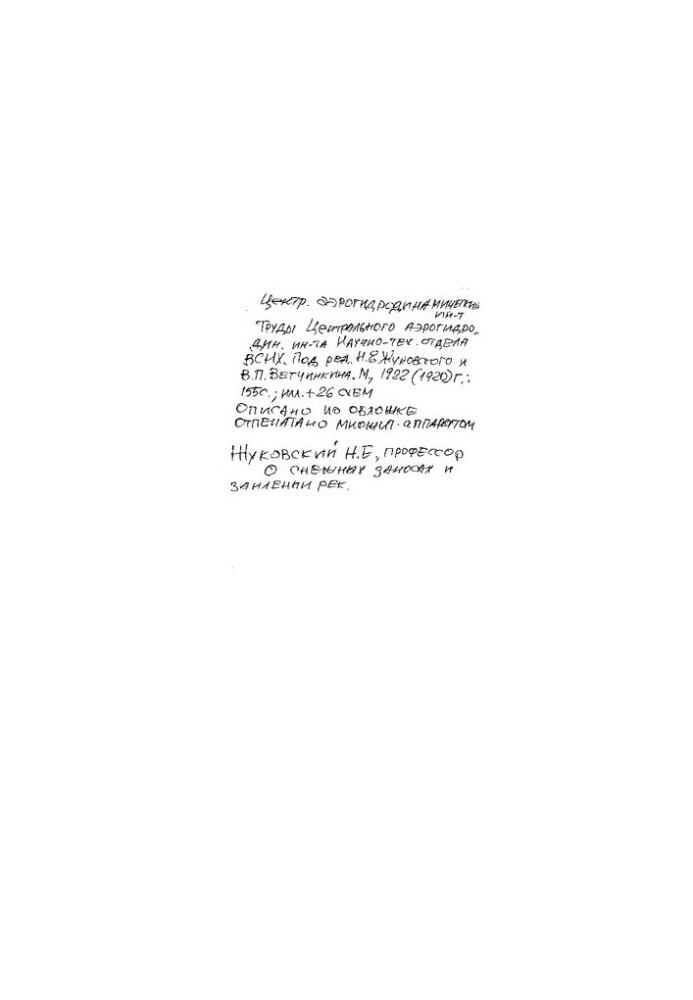 Центр. аэрогидродинамический
ин-т
Труды Центрального аэрогидро-
дин. ин-та Научно-тех. отдела
ВСНХ. Под ред. Н.Е.Жуковского и
В.П. Ветчинкина. М., 1922 (1920) г.:
155с.; ил. + 26 схем
Описано по обложке
Отпечатано множит. аппаратом
Жуковский Н.Е., профессор
О снежных заносах и
заилении рек.